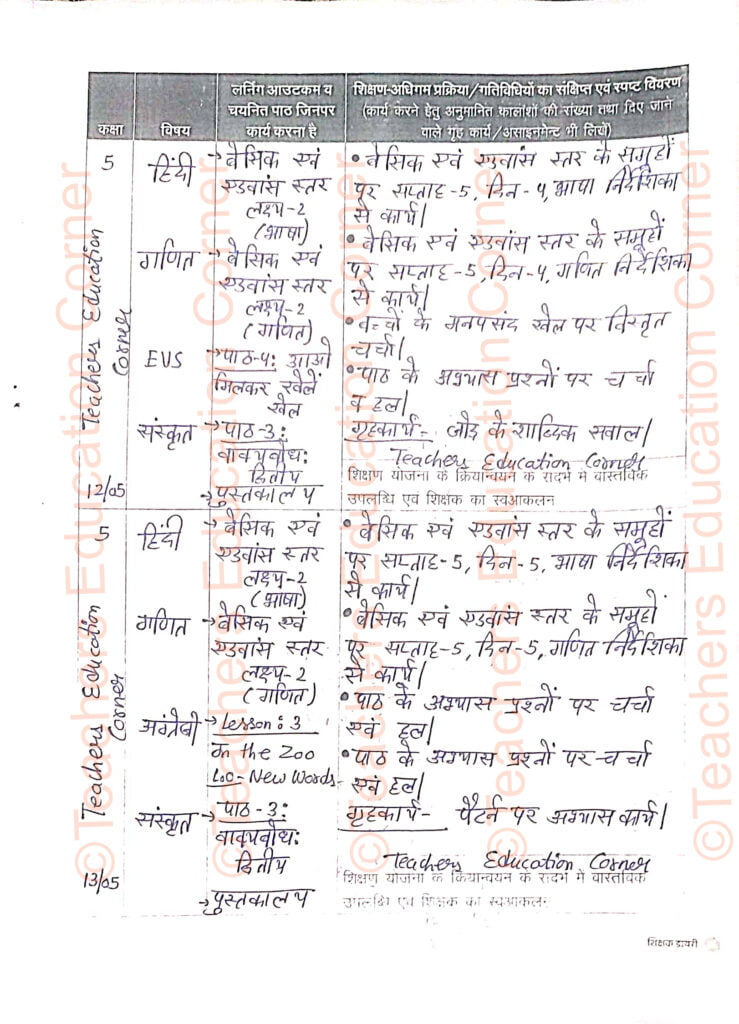 कक्षा
विषय
लर्निंग आउटकम व
चयनित पाठ जिनपर
कार्य करना है
शिक्षण-अधिगम प्रक्रिया/गतिविधियों का संक्षिप्त एवं स्पष्ट विवरण
(कार्य करने हेतु अनुमानित कालांशों की संख्या तथा दिए जाने
वाले गृह कार्य/असाइनमेन्ट भी लिखें)
5
Teachers Education
Corner
12/05
हिंदी
→ बेसिक एवं
एडवांस स्तर
लक्ष्य-2
(भाषा)
• बेसिक एवं एडवांस स्तर के समूहों
पर सप्ताह-5, दिन-4, भाषा निर्देशिका
से कार्य|
गणित
→ बेसिक एवं
एडवांस स्तर
लक्ष्य-2
(गणित)
• बेसिक एवं एडवांस स्तर के समूहों
पर सप्ताह-5, दिन-4, गणित निर्देशिका
से कार्य|
EVS
→ पाठ-4: आओ
मिलकर खेलें
खेल
• बच्चों के मनपसंद खेल पर विस्तृत
चर्चा|
संस्कृत
→ पाठ-3:
वाक्यबोध:
द्वितीय
→ पुस्तकालय
• पाठ के अभ्यास प्रश्नों पर चर्चा
व हल|
गृहकार्य- जोड़ के शाब्दिक सवाल|
Teachers Education Corner
शिक्षण योजना के क्रियान्वयन के संदर्भ में वास्तविक
उपलब्धि एवं शिक्षक का स्वआकलन
5
Teachers Education
Corner
13/05
हिंदी
→ बेसिक एवं
एडवांस स्तर
लक्ष्य-2
(भाषा)
• बेसिक एवं एडवांस स्तर के समूहों
पर सप्ताह-5, दिन-5, भाषा निर्देशिका
से कार्य|
गणित
→ बेसिक एवं
एडवांस स्तर
लक्ष्य-2
(गणित)
• बेसिक एवं एडवांस स्तर के समूहों
पर सप्ताह-5, दिन-5, गणित निर्देशिका
से कार्य|
अंग्रेजी
→ Lesson: 3
In the Zoo
LO- New Words-
• पाठ के अभ्यास प्रश्नों पर चर्चा
एवं हल|
संस्कृत
→ पाठ-3:
वाक्यबोध:
द्वितीय
→ पुस्तकालय
• पाठ के अभ्यास प्रश्नों पर चर्चा
एवं हल|
गृहकार्य- पैटर्न पर अभ्यास कार्य|
Teachers Education Corner
शिक्षण योजना के क्रियान्वयन के संदर्भ में वास्तविक
उपलब्धि एवं शिक्षक का स्वआकलन
शिक्षक डायरी
©Teachers Education Corner
©Teachers Education Corner
©Teachers Education Corner
©Teachers Education Corner
©Teachers Education Corner